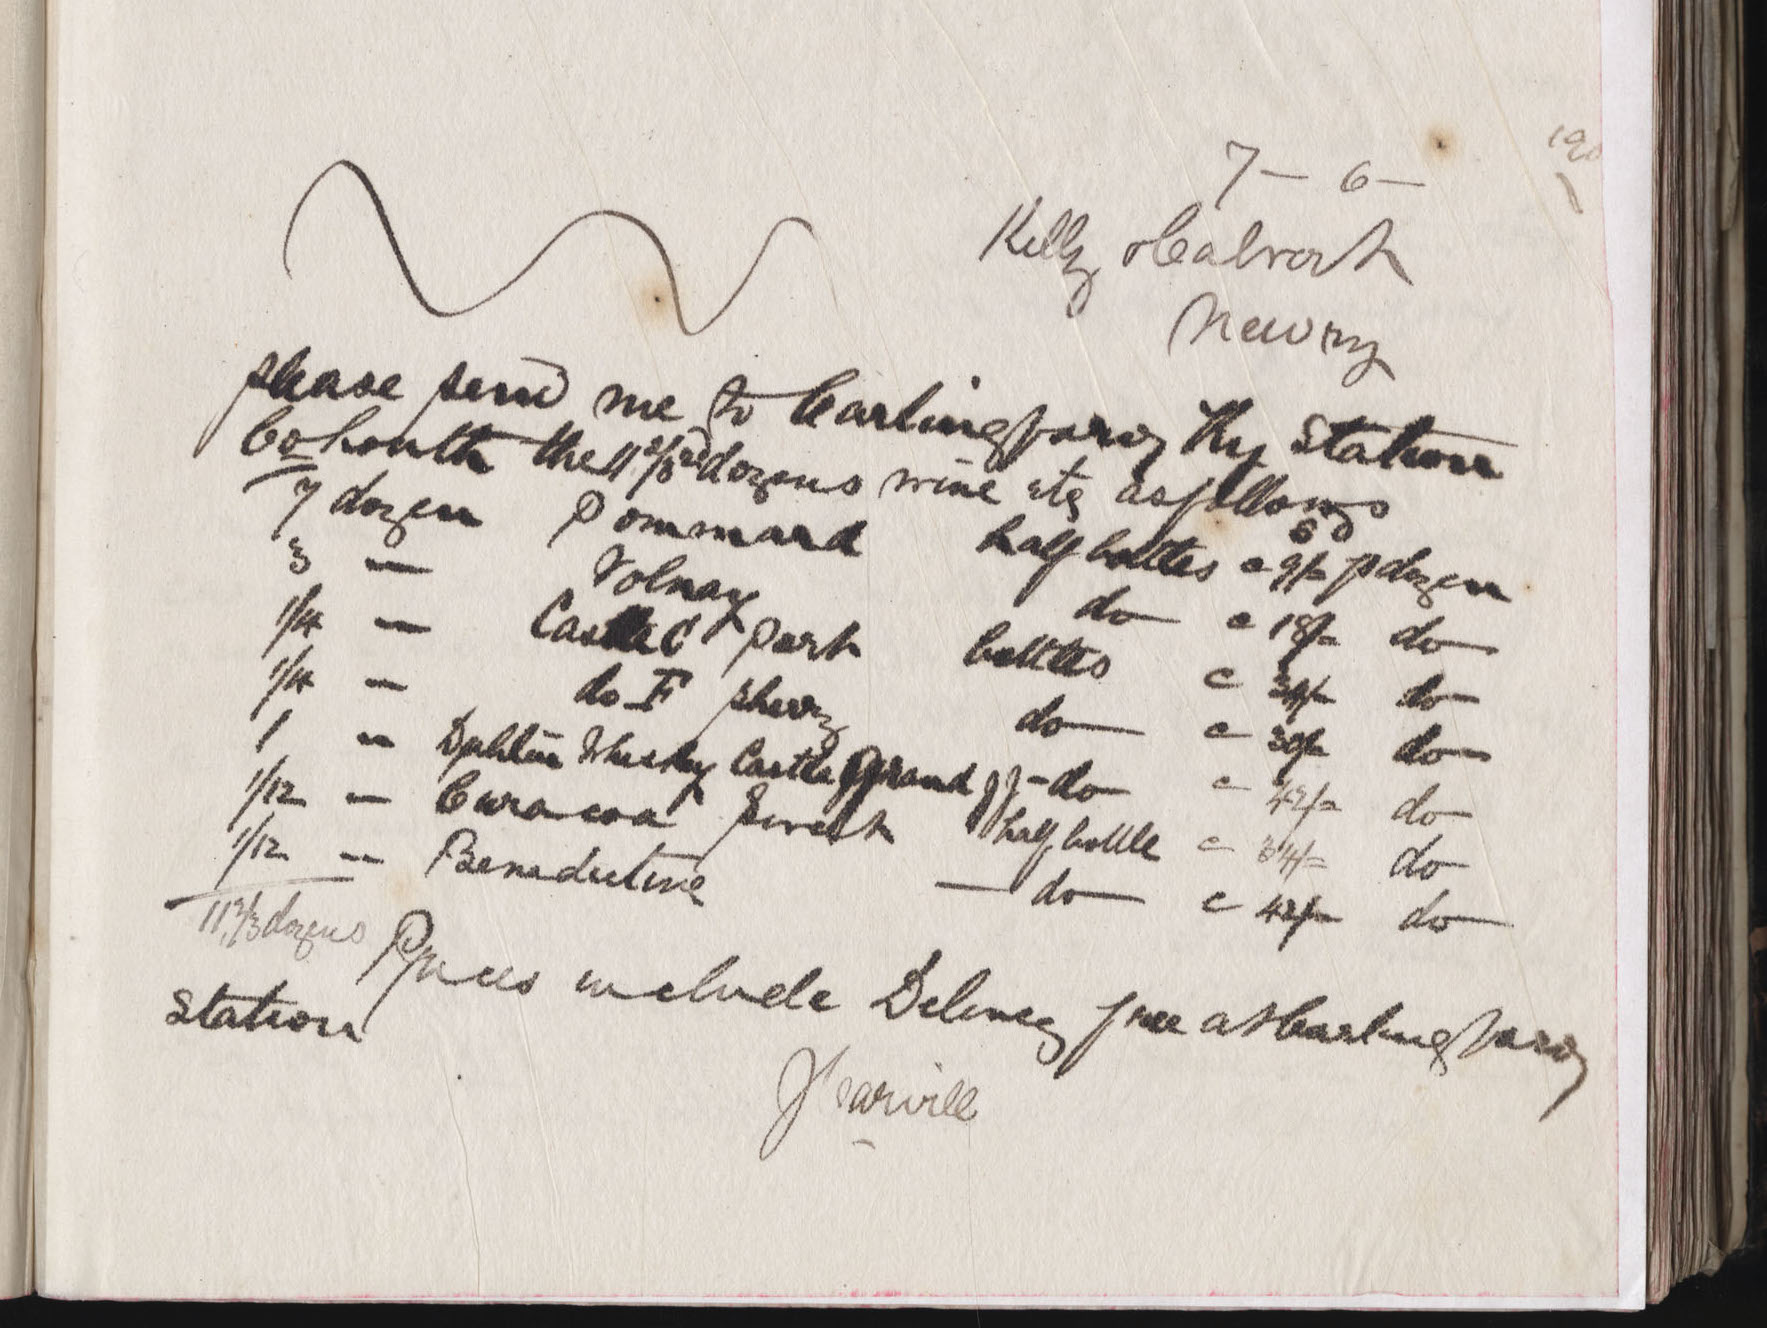 190
7 — 6 —
Kelly & Calvert
Newry
please send me to Carlingford Rly Station
Co Louth the 11 2/3rd dozens wine etc as follows
7 dozen Pommard half bottles @ 9/6 p dozen
3 — Volnay do @ 18/- do
1/4 — Castle C Port bottles @ 34/- do
1/4 — do F sherry do @ 30/- do
1 — Dublin Whisky Castle Grand do @ 42/- do
1/12 — Curacoa Sweet half bottle @ 34/- do
1/12 — Benedictine — do @ 42/- do
11 2/3 dozens
Prices include Delivery free at Carlingford
Station
J Carvill